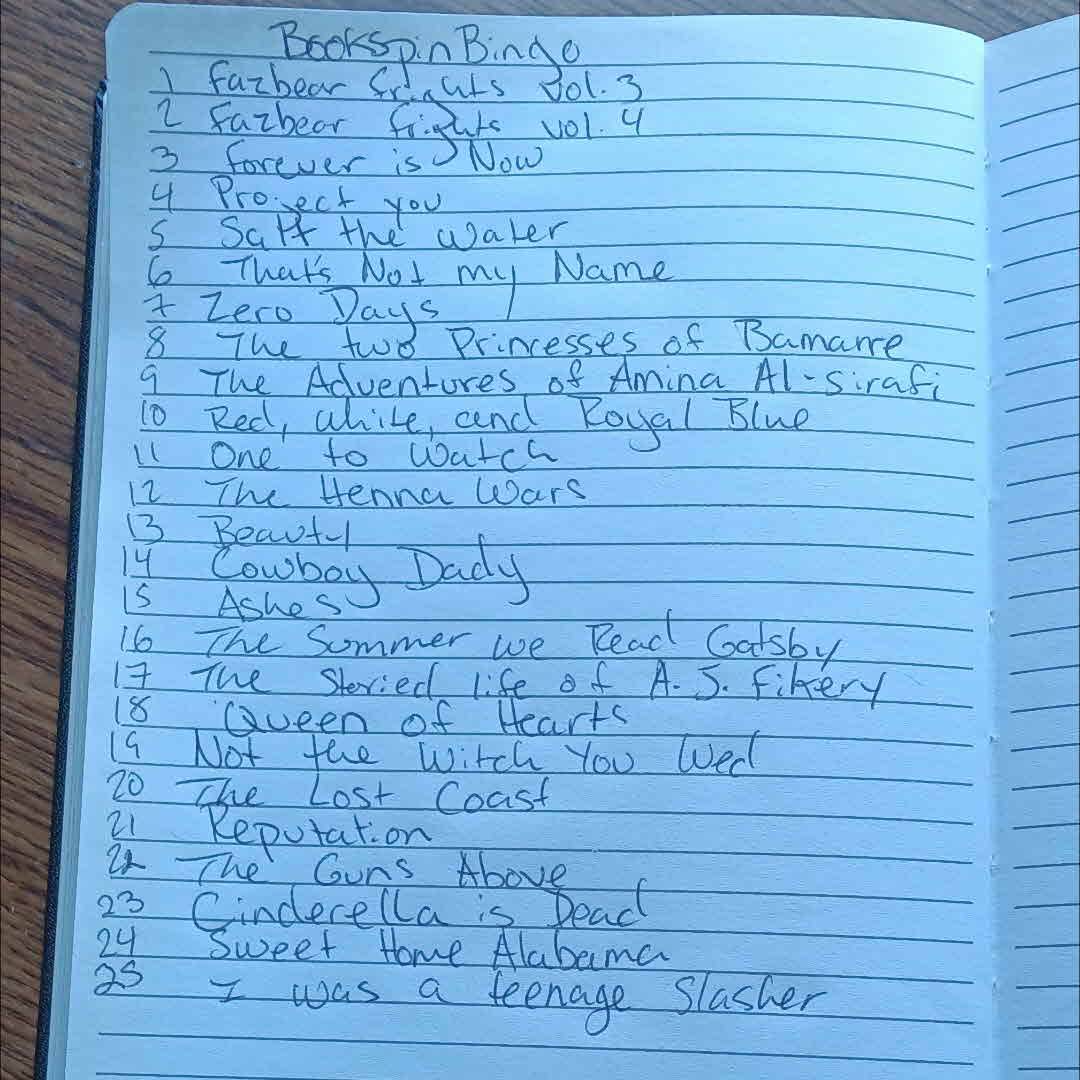 Bookspin Bingo
1 Fazbear Frights Vol. 3
2 Fazbear Frights Vol. 4
3 Forever is Now
4 Project you
5 Salt the water
6 That's Not my Name
7 Zero Days
8 The two Princesses of Bamarre
9 The Adventures of Amina Al-Sirafi
10 Red, White, and Royal Blue
11 One to Watch
12 The Henna Wars
13 Beauty
14 Cowboy Dady
15 Ashes
16 The Summer we Read Gatsby
17 The Storied life of A. J. Fikery
18 Queen of Hearts
19 Not the Witch You Wed
20 The Lost Coast
21 Reputation
22 The Guns Above
23 Cinderella is Dead
24 Sweet Home Alabama
25 I was a teenage Slasher